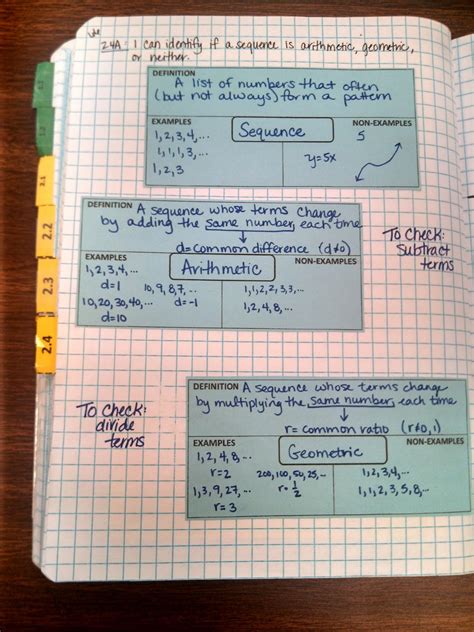 2.4A: I can identify if a sequence is arithmetic, geometric,
or neither.
DEFINITION
A list of numbers that often
(but not always) form a pattern
EXAMPLES
Sequence
NON-EXAMPLES
1, 2, 3, 4, ...
1, 1, 1, 3, ...
1, 2, 3
5
y=5x
DEFINITION A sequence whose terms change
by adding the same number, each time
d=common difference (d≠0)
EXAMPLES
Arithmetic
NON-EXAMPLES
1, 2, 3, 4, ...
d=1
10, 9, 8, 7, ...
d=-1
10, 20, 30, 40, ...
d=10
1, 1, 2, 2, 3, 3, ...
1, 2, 4, 8, ...
To Check:
Subtract
terms
To Check:
divide
terms
DEFINITION A sequence whose terms change
by multiplying the same number, each time
r= common ratio (r≠0,1)
EXAMPLES
Geometric
NON-EXAMPLES
1, 2, 4, 8, ...
r=2
200, 100, 50, 25, ...
r=1/2
1, 3, 9, 27, ...
r=3
1, 2, 3, 4, ...
1, 1, 2, 3, 5, 8, ...
2.1
2.2
2.3
2.4